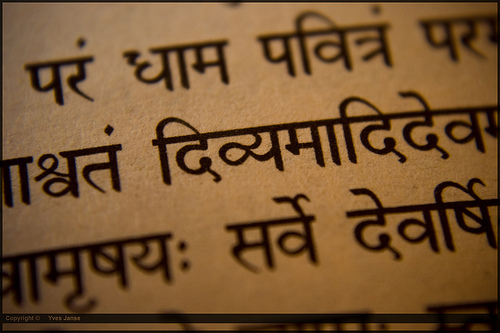 परं धाम पवित्रं पर
ाश्वतं दिव्यमादिदेवम
त्रामृषयः सर्वे देवर्षि
Copyright © Yves Janse